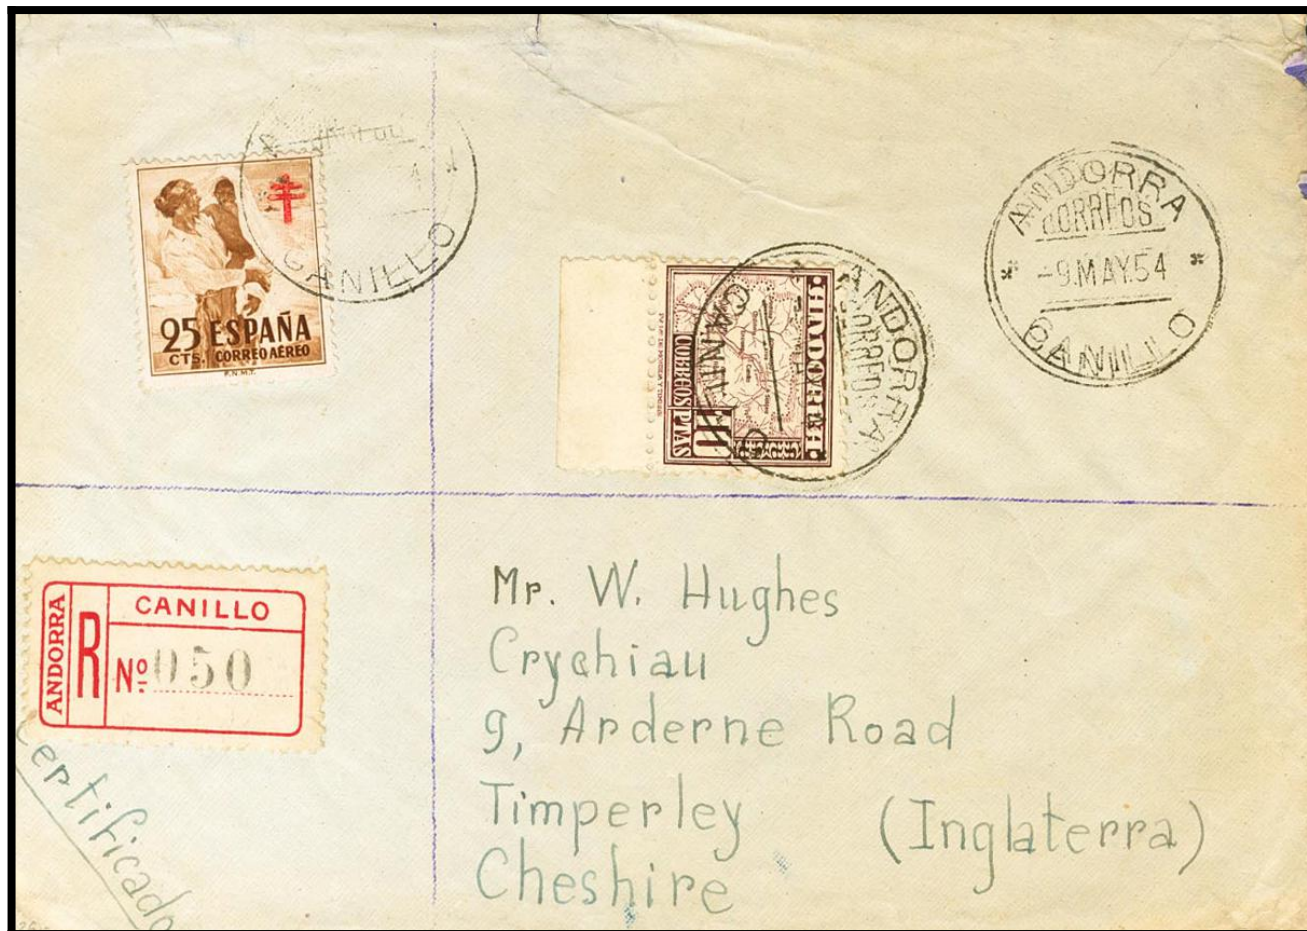 CANILLO
25 ESPAÑA
CTS. CORREO AÉREO
F.N.M.T.
ANDORRA
CORREOS
CANILLO
ANDORRA
CORREOS
10 PTAS
ANDORRA
CORREOS
-9.MAY.54
CANILLO
ANDORRA
R
CANILLO
Nº 050
Certificado
Mr. W. Hughes
Crychiau
9, Arderne Road
Timperley (Inglaterra)
Cheshire